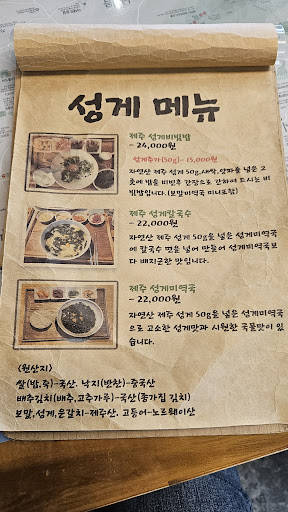 성게 메뉴
제주 성게비빔밥
- 24,000원
성게추가(50g)- 15,000원
자연산 제주 성게 50g,새싹,양파를 넣은 그
릇에 밥을 비빈후 간장으로 간하여 드시는 비
빔밥입니다.(보말미역국 미니포함)
제주 성게칼국수
- 22,000원
자연산 제주 성게 50g을 넣은 성게미역국
에 칼국수 면을 넣어 만들어 성게미역국보
다 배지근한 맛입니다.
제주 성게미역국
- 22,000원
자연산 제주 성게 50g을 넣은 성게미역국
으로 고소한 성게맛과 시원한 국물맛이 있
습니다.
<원산지>
쌀(밥,죽)-국산. 낙지(반찬)-중국산
배추김치(배추,고추가루)-국산(종가집 김치)
보말,성게,은갈치-제주산. 고등어-노르웨이산